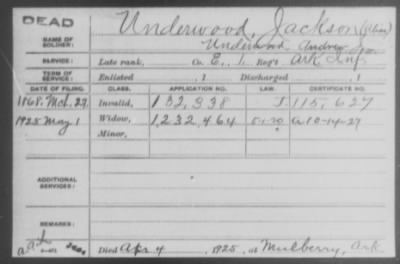 DEAD
Underwood, Jackson (Alias)
NAME OF SOLDIER: Underwood, Andrew
SERVICE: Late rank, Co. E, 1 Reg't Ark Inf
TERM OF SERVICE: Enlisted , 1 Discharged , 1
DATE OF FILING. CLASS. APPLICATION NO. LAW. CERTIFICATE NO.
1868. Mch. 27. Invalid, 132,338 J 115,627
1925 May 1 Widow, 1,232,464 a 10-14-27
Minor,
ADDITIONAL SERVICES:
REMARKS:
Died Apr 4, 1925, at Mulberry, Ark